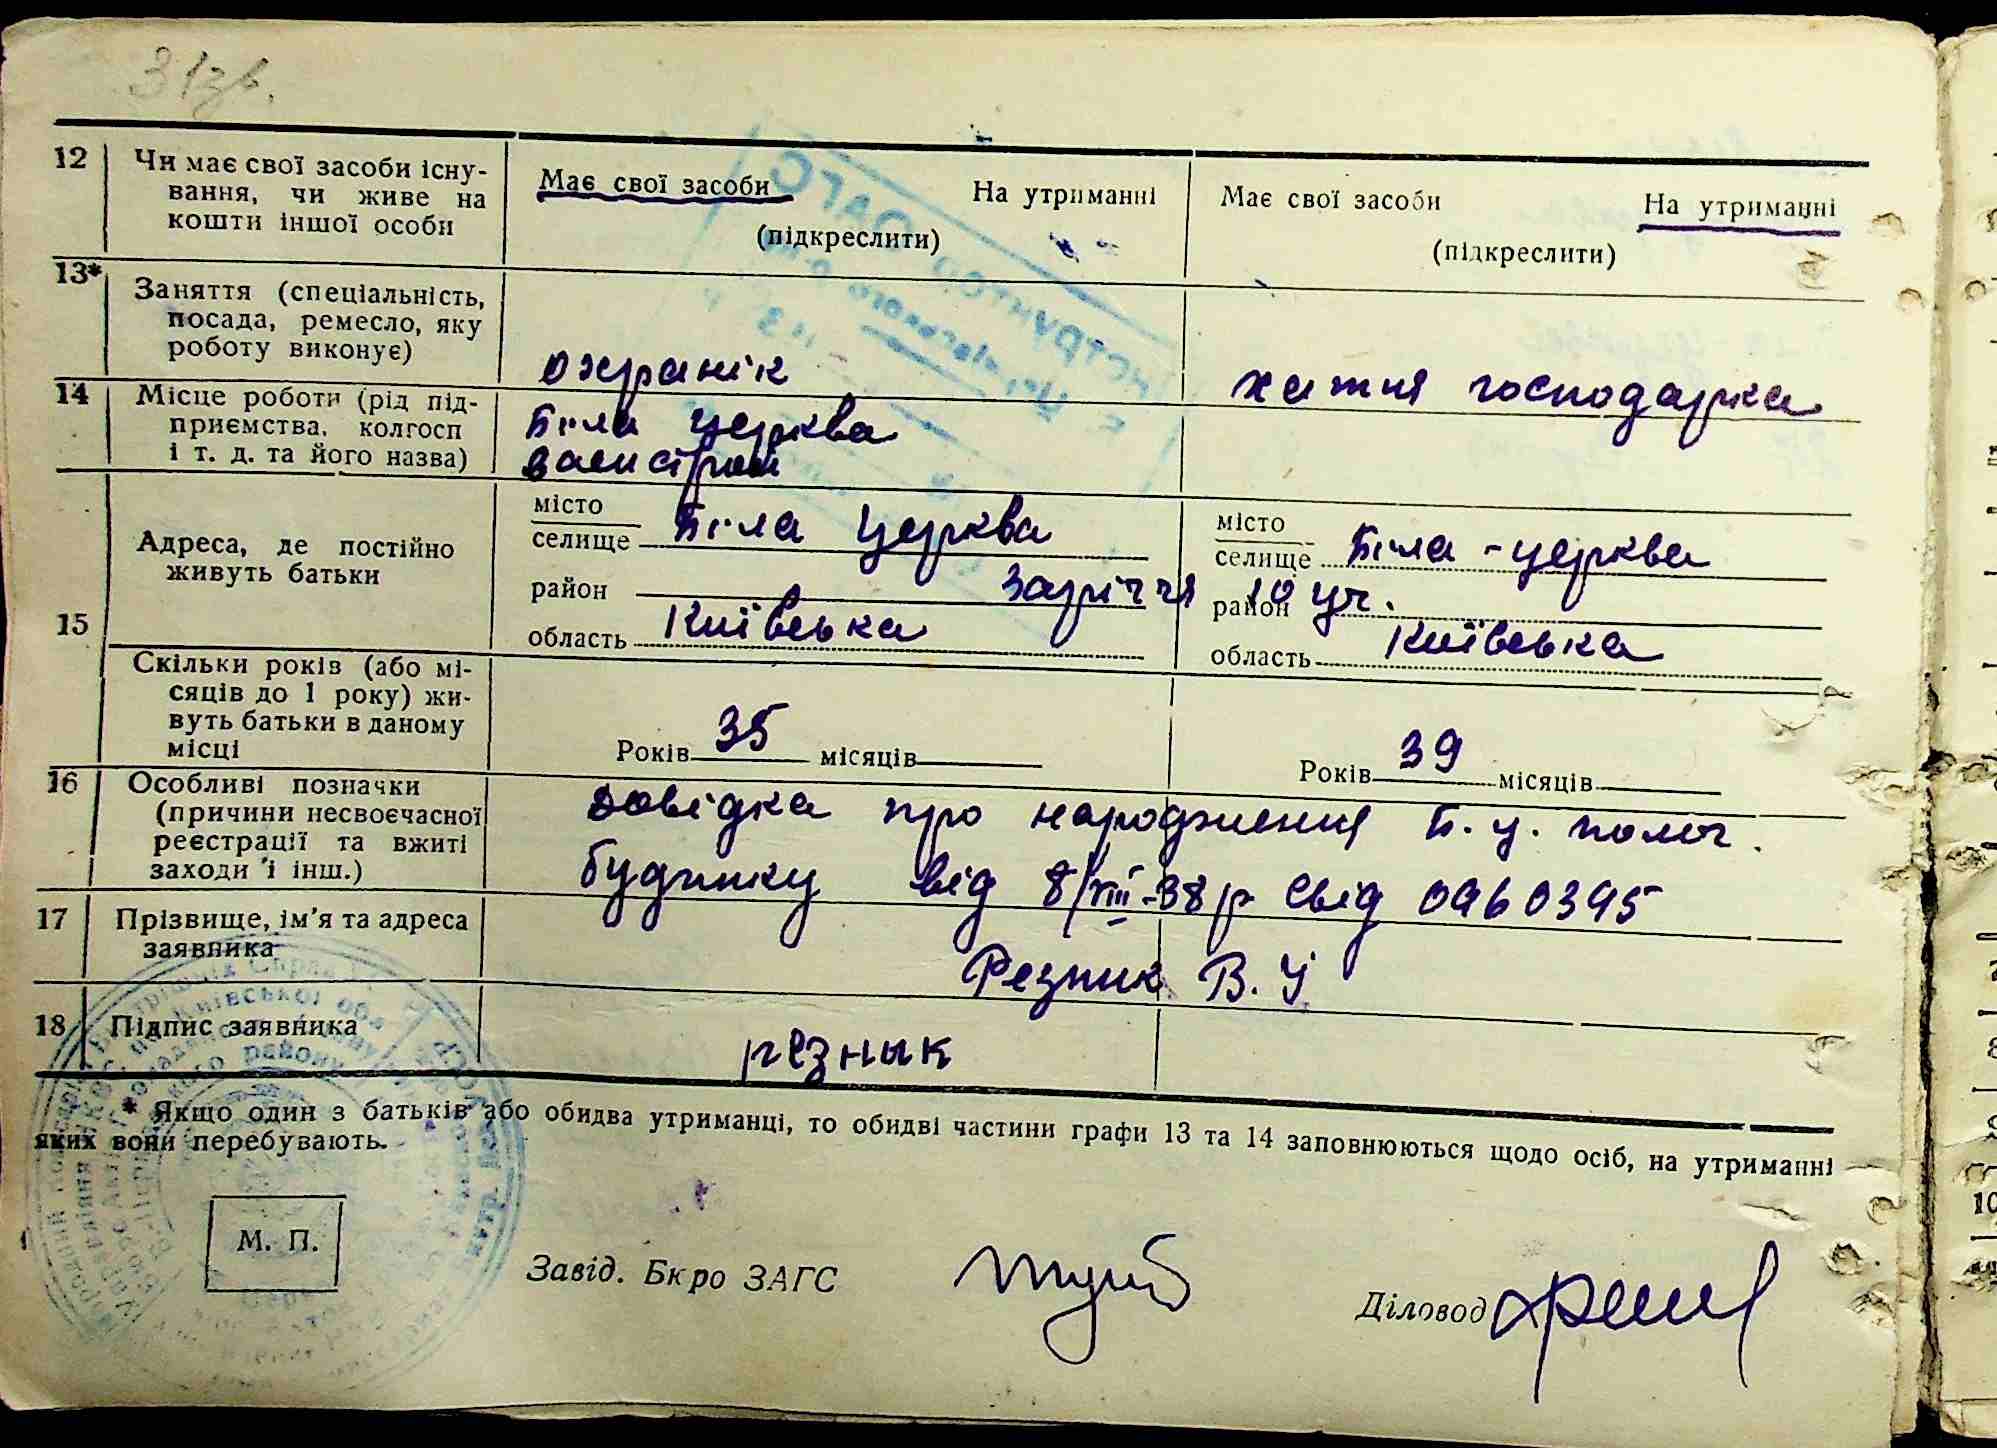 31зв.
12 Чи має свої засоби існу-
вання, чи живе на
кошти іншої особи
Має свої засоби На утриманні
(підкреслити)
Має свої засоби На утриманні
(підкреслити)
13* Заняття (спеціальність,
посада, ремесло, яку
роботу виконує)
охранік
хатня господарка
14 Місце роботи (рід під-
приємства, колгосп
і т. д. та його назва)
Біла церква
15 Адреса, де постійно
живуть батьки
місто
селище Біла Церква
район Заріччя
область Київська
місто
селище Біла-церква
район 10 уч.
область Київська
Скільки років (або мі-
сяців до 1 року) жи-
вуть батьки в даному
місці
Років 35 місяців
Років 39 місяців
16 Особливі позначки
(причини несвоєчасної
реєстрації та вжиті
заходи і інш.)
Довідка про народження Б. Ц. полог.
будинку від 8/VIII-38 р Свід 0960395
17 Прізвище, ім'я та адреса
заявника
Резник В. У
18 Підпис заявника
резнык
* Якщо один з батьків або обидва утриманці, то обидві частини графи 13 та 14 заповнюються щодо осіб, на утриманні
яких вони перебувають.
М. П.
Завід. Бюро ЗАГС
Діловод